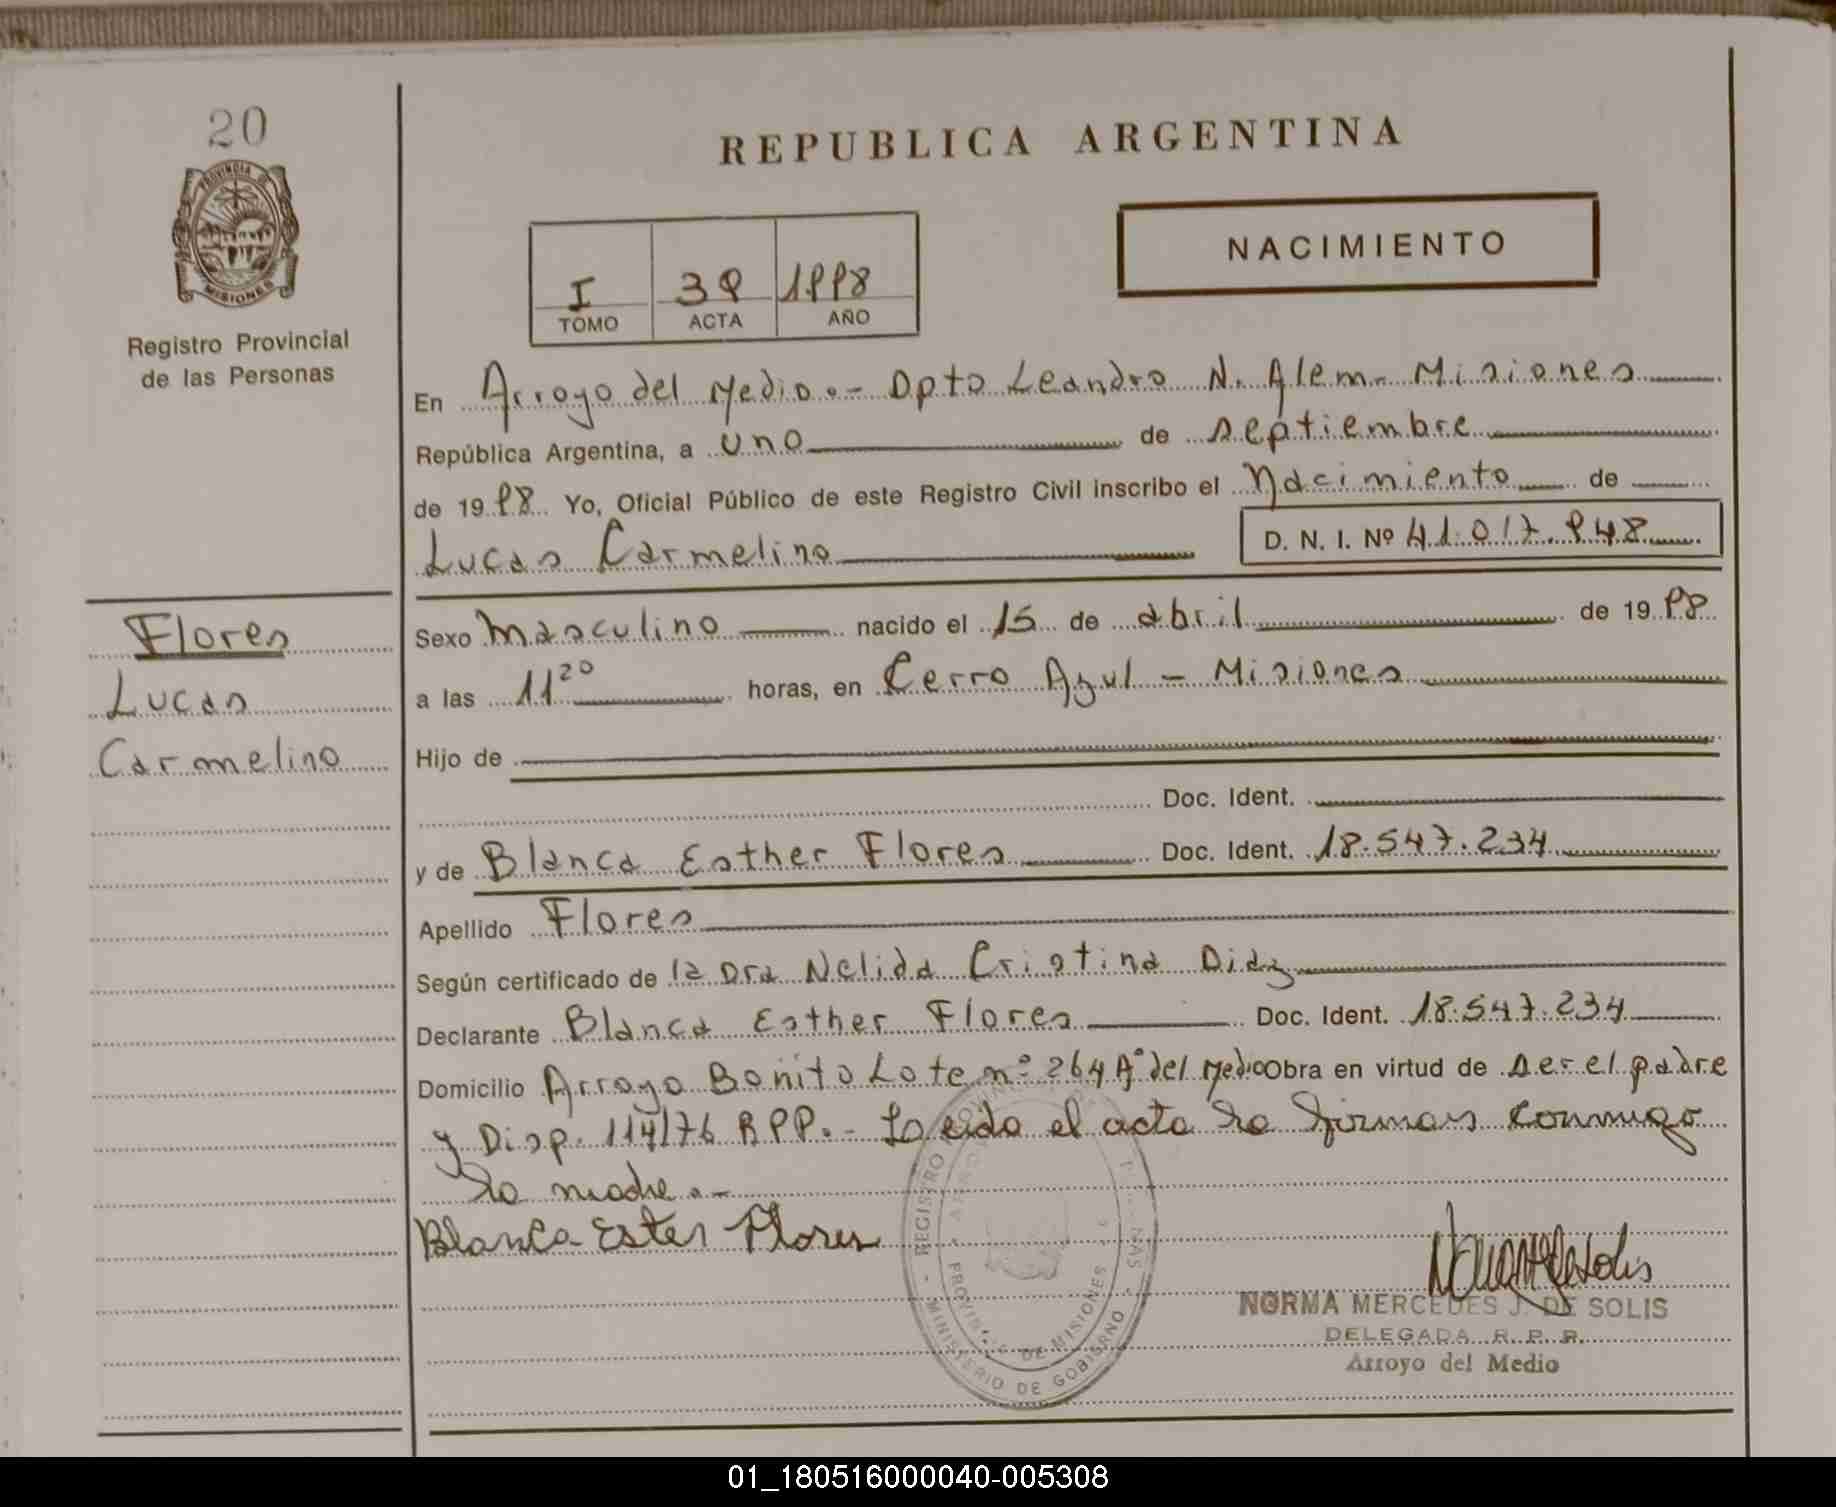 20
PROVINCIA DE
MISIONES
Registro Provincial
de las Personas
REPUBLICA ARGENTINA
NACIMIENTO
I 39 1998
TOMO ACTA AÑO
En Arroyo del Medio.- Dpto Leandro N. Alem - Misiones
República Argentina, a uno de septiembre
de 1998 Yo, Oficial Público de este Registro Civil inscribo el Nacimiento de
Lucas Carmelino D. N. I. Nº 41.017.948
Flores
Lucas
Carmelino
Sexo Masculino nacido el 15 de abril de 1998
a las 11 20 horas, en Cerro Azul - Misiones
Hijo de
Doc. Ident.
y de Blanca Esther Flores Doc. Ident. 18.547.234
Apellido Flores
Según certificado de la Dra Nelida Cristina Diaz
Declarante Blanca Esther Flores Doc. Ident. 18.547.234
Domicilio Arroyo Bonito Lote nº 264 Aº del Medio Obra en virtud de ser el padre
y Disp. 114/76 RPP.- Leida el acta la firman conmigo
la madre.-
Blanca Ester Flores
REGISTRO
PROVINCIA DE MISIONES
MINISTERIO DE GOBIERNO
NORMA MERCEDES J. DE SOLIS
DELEGADA R. P. P.
Arroyo del Medio
01_180516000040-005308